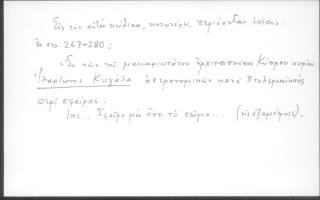 Εἰς τὸν αὐτὸν κώδικα, κατωτέρω, περιέχεται ἐπίσης:
ἐν σσ. 267-280:
«Ἐκ τῶν τοῦ μακαριωτάτου Ἀρχιεπισκόπου Κύπρου κυρίου
Ἱλαρίωνος Κιγάλα ἀστρονομικῶν κατὰ Πτολεμαϊκοὺς
περὶ σφαίρας.
Ἀρχ... Σφαῖρα μέν ἐστι τὸ σῶμα... (εἰς ἑξαμέτρους).